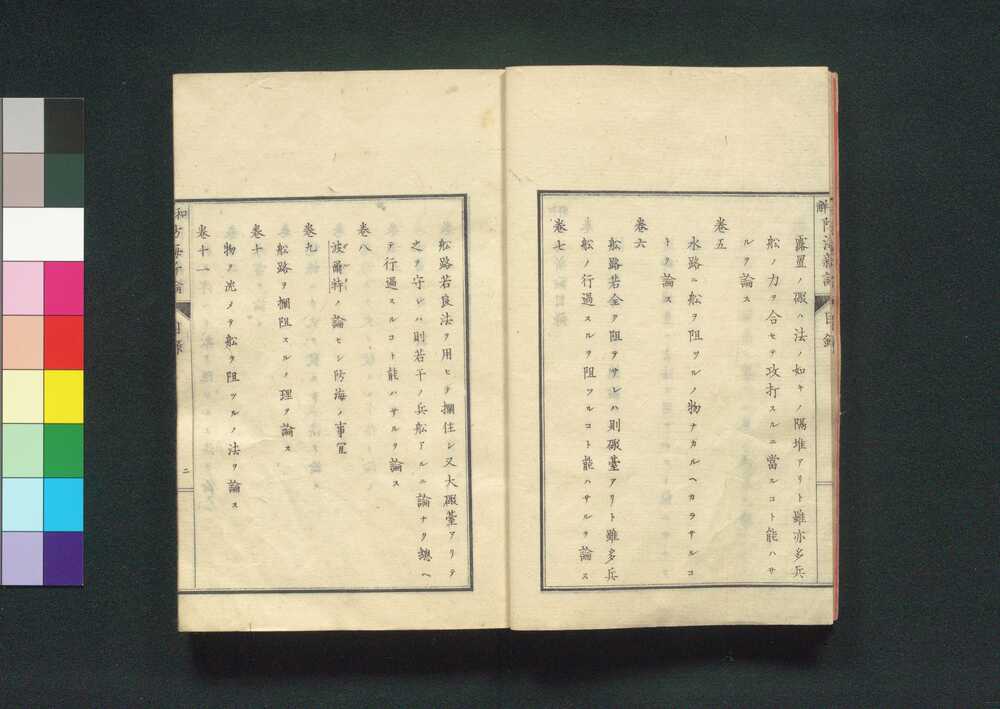 解防海新論 目錄
露置ノ礮ハ法ノ如キノ隔堆アリト雖亦多兵
舩ノ力ヲ合セテ攻打スルニ當ルコト能ハサ
ルヲ論ス
卷五
水路ニ舩ヲ阻ツルノ物ナカルヘカラサルコ
トヲ論ス
卷六
舩路若全ク阻ヲサレハ則礮臺アリト雖多兵
舩ノ行過スルヲ阻ツルコト能ハサルヲ論ス
卷七
舩路若良法ヲ用ヒテ攔住シ又大礮臺アリテ
之ヲ守レハ則若干ノ兵舩アルニ論ナク總ヘ
テ行過スルコト能ハサルヲ論ス
卷八
波爾特ノ論セシ防海ノ事宜
卷九
舩路ヲ攔阻スルノ理ヲ論ス
卷十
物ヲ沈メテ舩ヲ阻ツルノ法ヲ論ス
卷十一
二